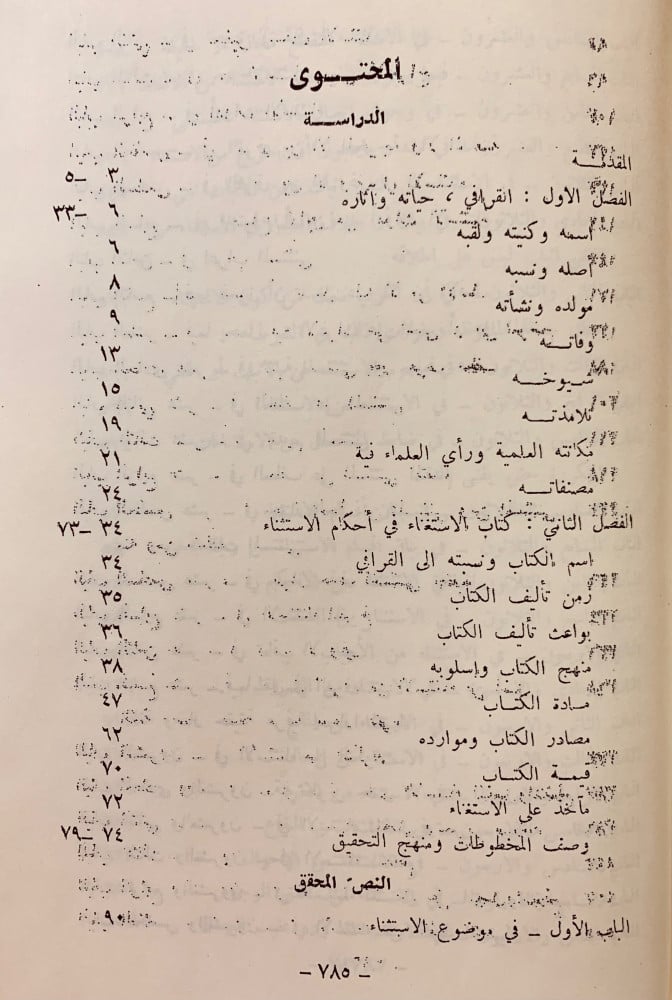 المحتـــوى
الدراســـة
المقدمـة ٣ ــ٥
الفصل الاول : القرافي ، حياته وآثاره ٦ ــ٣٣
اسمه وكنيته ولقبه ٦
أصله ونسبه ٨
مولده ونشأته ٩
وفاتـــه ١٣
شيوخـــه ١٥
تلامذتـــه ١٩
مكانته العلمية ورأي العلماء فية ٢١
مصنفاتـــه ٢٤
الفصل الثاني : كتاب الاستغناء في أحكام الاستثناء ٣٤ ــ٧٣
اسم الكتاب ونسبته الى القرافي ٣٤
زمن تأليف الكتاب ٣٥
بواعث تأليف الكتاب ٣٦
منهج الكتاب واسلوبه ٣٨
مـادة الكتـاب ٤٧
مصادر الكتاب وموارده ٦٢
قيمـة الكتـاب ٧٠
مآخذ على الاستغناء ٧٢
وصف المخطوطات ومنهج التحقيق ٧٤ ــ٧٩
النص المحقق
الباب الأول ــ في موضوع الاستثناء ٩٠
ــ ٧٨٥ ــ